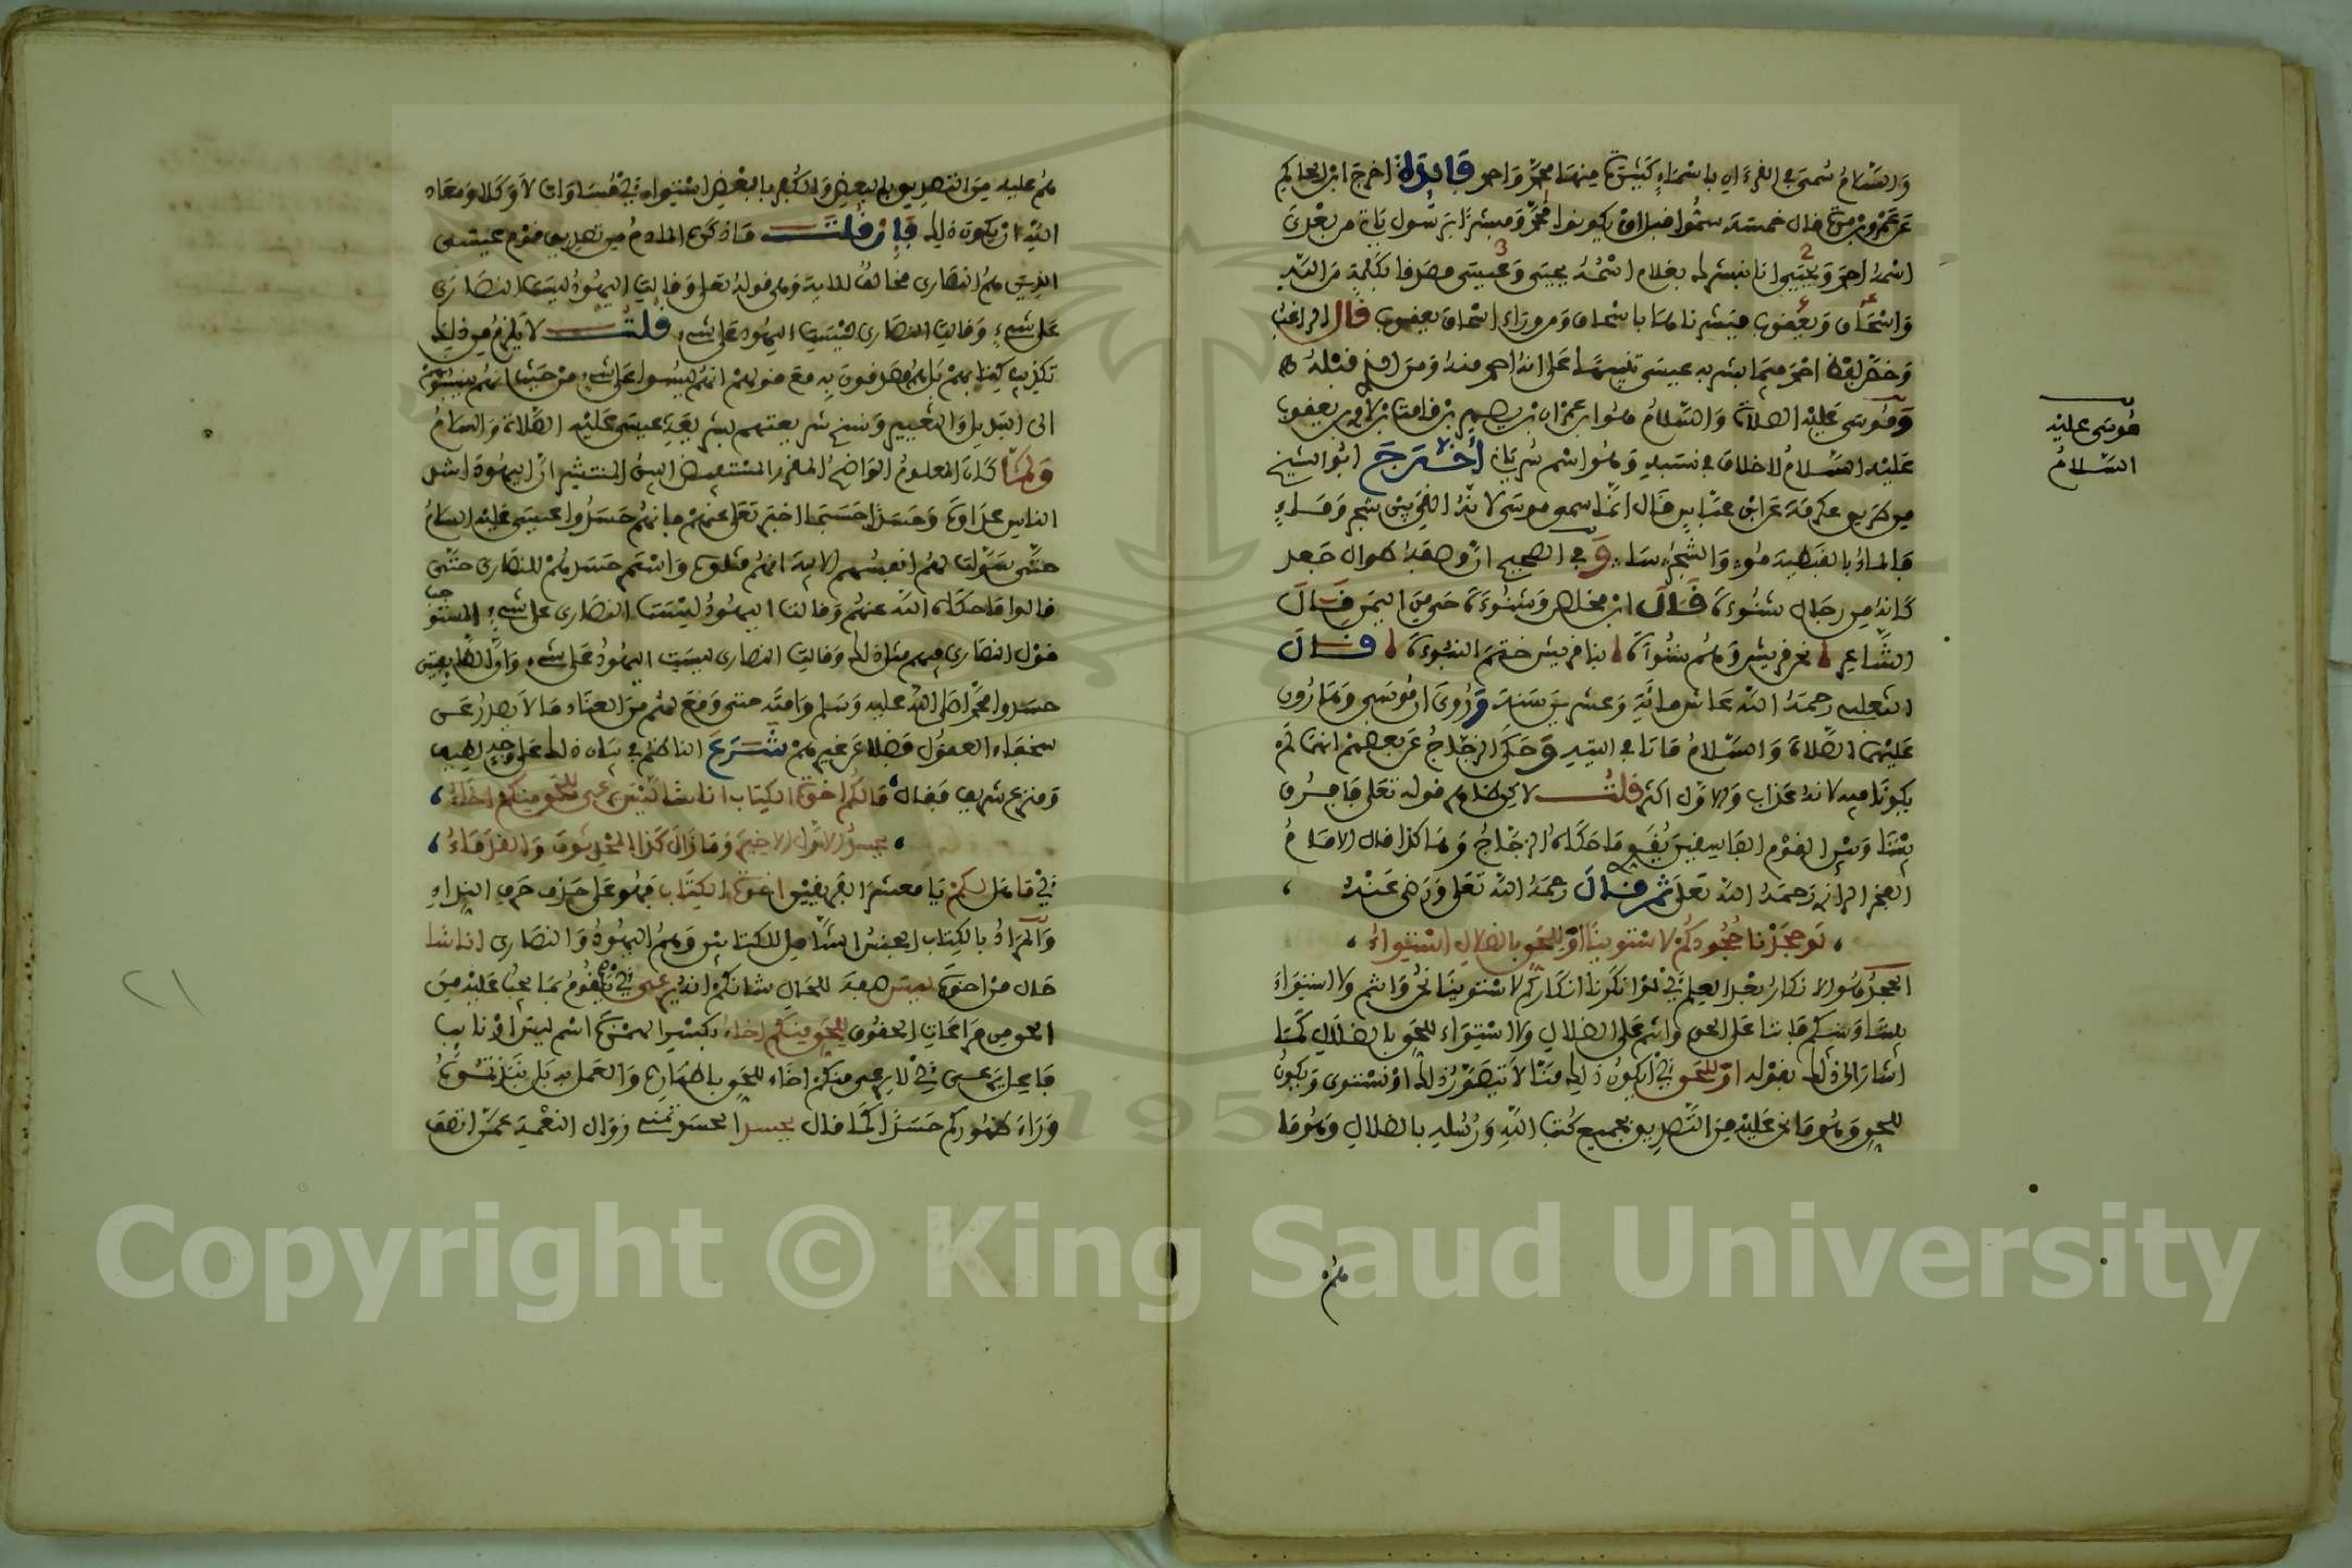 والسلام سمى في القرءان باسماء كثيرة منها محمد واحمد فايدة اخرج ابن ابي حاكم
عن عمرو بن مرة قال خمسة سموا قبل ان يكونوا محمد ومبشرا برسول ياتي من بعدي
اسمه احمد ويحيى انا نبشرك بغلام اسمه يحيى وعيسى مصدقا بكلمة من الله
2 3
واسحاق ويعقوب فبشرناها باسحاق ومن وراء اسحاق يعقوب قال الراغب
وخص لفظ احمد فيما بشر به عيسى تنبيها على انه احمد منه ومن الذين قبله
وموسى عليه الصلاة والسلام هو ابن عمران بن يصهر بن قاهث بن لاوي بن يعقوب
عليه السلام لا خلاف في نسبه وهو اسم سرياني اخرج ابو الشيخ
من طريق عكرمة عن ابن عباس قال انما سمي موسى لانه القي بين شجر وماء
فالماء بالقبطية مو والشجر سا وفي الصحيح ان وصفه طوال جعد
كانه من رجال شنوءة قال ابن مخلص وشنوءة حي من اليمن قال
الشاعر نحن قريش وهم شنوءة بنا قريش ختم النبوءة قال
الثعلبي رحمه الله عاش مائة وعشرين سنة وروي ان موسى وهارون
عليهما الصلاة والسلام ماتا في التيه وحكى الزجاج عن بعضهم انهما لم
يكونا فيه لانه عذاب والاول اكثر قلت لاكن ظاهر قوله تعالى فافرق
بيننا وبين القوم الفاسقين يقوي ما حكاه الزجاج وهاكذا قال الامام
الفخر الرازي رحمه الله تعالى ثم قال رحمه الله تعالى ورضي عنه
لو جحدنا جحودكم لاستوينا او للحق بالضلال استواء
الجحد هو الانكار بعد العلم اي لو انكرنا انكاركم لاستوينا نحن وانتم ولا استواء
بيننا وبينكم فاننا على الحق وانتم على الضلال ولا استواء للحق بالضلال كما
اشار الى ذلك بقوله او للحق اي ايكون ذلك منا لا يتصور ذلك او نستوي ويكون
للحق وهو ما نحن عليه من التصديق بجميع كتب الله ورسله بالضلال وهو ما
هم
موسى عليه
السلام
هم عليه من التصديق بالبعض والكفر بالبعض استواء اي مساوات لا وكلا ومعاد
الله ان يكون ذلك فان قلت ما ذكره الناظم من تصديق قوم عيسى
الذين هم النصارى مخالف للاية وهي قوله تعلى وقالت اليهود ليست النصارى
على شيء وقالت النصارى ليست اليهود على شيء قلت لا يلزم من ذلك
تكذيب كتابهم بل هم مصدقون به مع قولهم انهم ليسوا على شيء من حيث انهم ينسبونهم
الى التبديل والتغيير ونسخ شريعتهم بشريعة عيسى عليه الصلاة والسلام
ولما كان المعلوم الواضح المقرر المستفيض البين المنتشر ان اليهود اشد
الناس عداوة وحسدا حسبما اخبر تعالى عنهم بانهم حسدوا عيسى عليه السلام
حتى سولت لهم انفسهم الاية انهم قتلوه واستمر حسدهم للنصارى حتى
قالوا ما حكاه الله عنهم وقالت اليهود ليست النصارى على شيء المستوجب
قول النصارى فيهم مثل ذلك وقالت النصارى ليست اليهود على شيء وان الطايفتين
حسدوا محمدا صلى الله عليه وسلم وامته حتى وقع لهم من العناد ما لا يصدر عن
سخفاء العقول فضلا عن غيرهم شرع الناظم في بيان ذلك على وجه لطيف
ومنزع شريف فقال ما لكم اخوة الكتاب اناسا ليس يرعى للحق منكم اخاء
يحسد الاول الاخير وما زال كذا المحدثون والقدماء
اي ما بالكم يا معشر الفريقين اخوة الكتاب فهو على حذف حرف النداء
والمراد بالكتاب الجنس الشامل للكتابين وهم اليهود والنصارى اناسا
حال من اخوة ليس صفة للحال شانكم انه يرعى اي يقوم بما يجب عليه من
الحق من مراعات الحقوق للحق منكم اخاء بكسر الهمزة اسم ليس او نايب
فاعل يرعى اي لا يرعى منكم اخاء للحق باظهاره والعمل به بل تنبذونه
وراء ظهوركم حسدا كما قال يحسد الحسد تمني زوال النعمة عمن اتصف
٢١
Copyright © King Saud University
1957